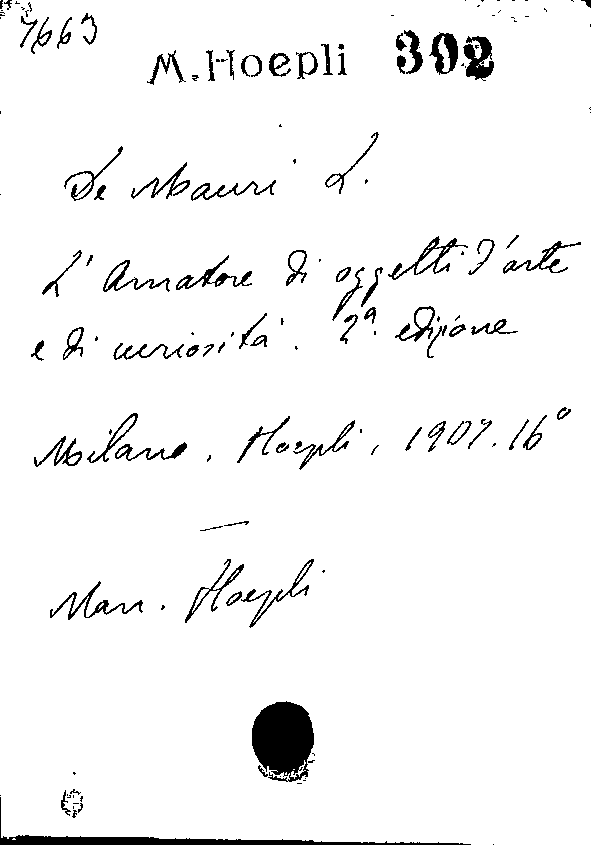 7663
M. Hoepli 302
De Mauri L.
L'Amatore di oggetti d'arte
e di curiosità. 2ª. edizione
Milano. Hoepli, 1907. 16°
—
Man. Hoepli